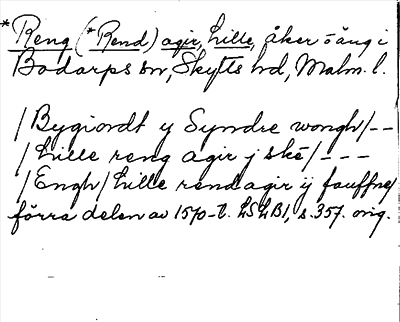 *Reng (*Rend) agir, Lille, åker o äng i
Bodarps sn, Skytts hd, Malm. l.
/Bygiordt y Syndre wongh/--
/Lille reng agir j ske/---
/Engh/ Lille rend agir ij fouffne/
förra delen av 1570-t. LSLB1, s. 357. orig.